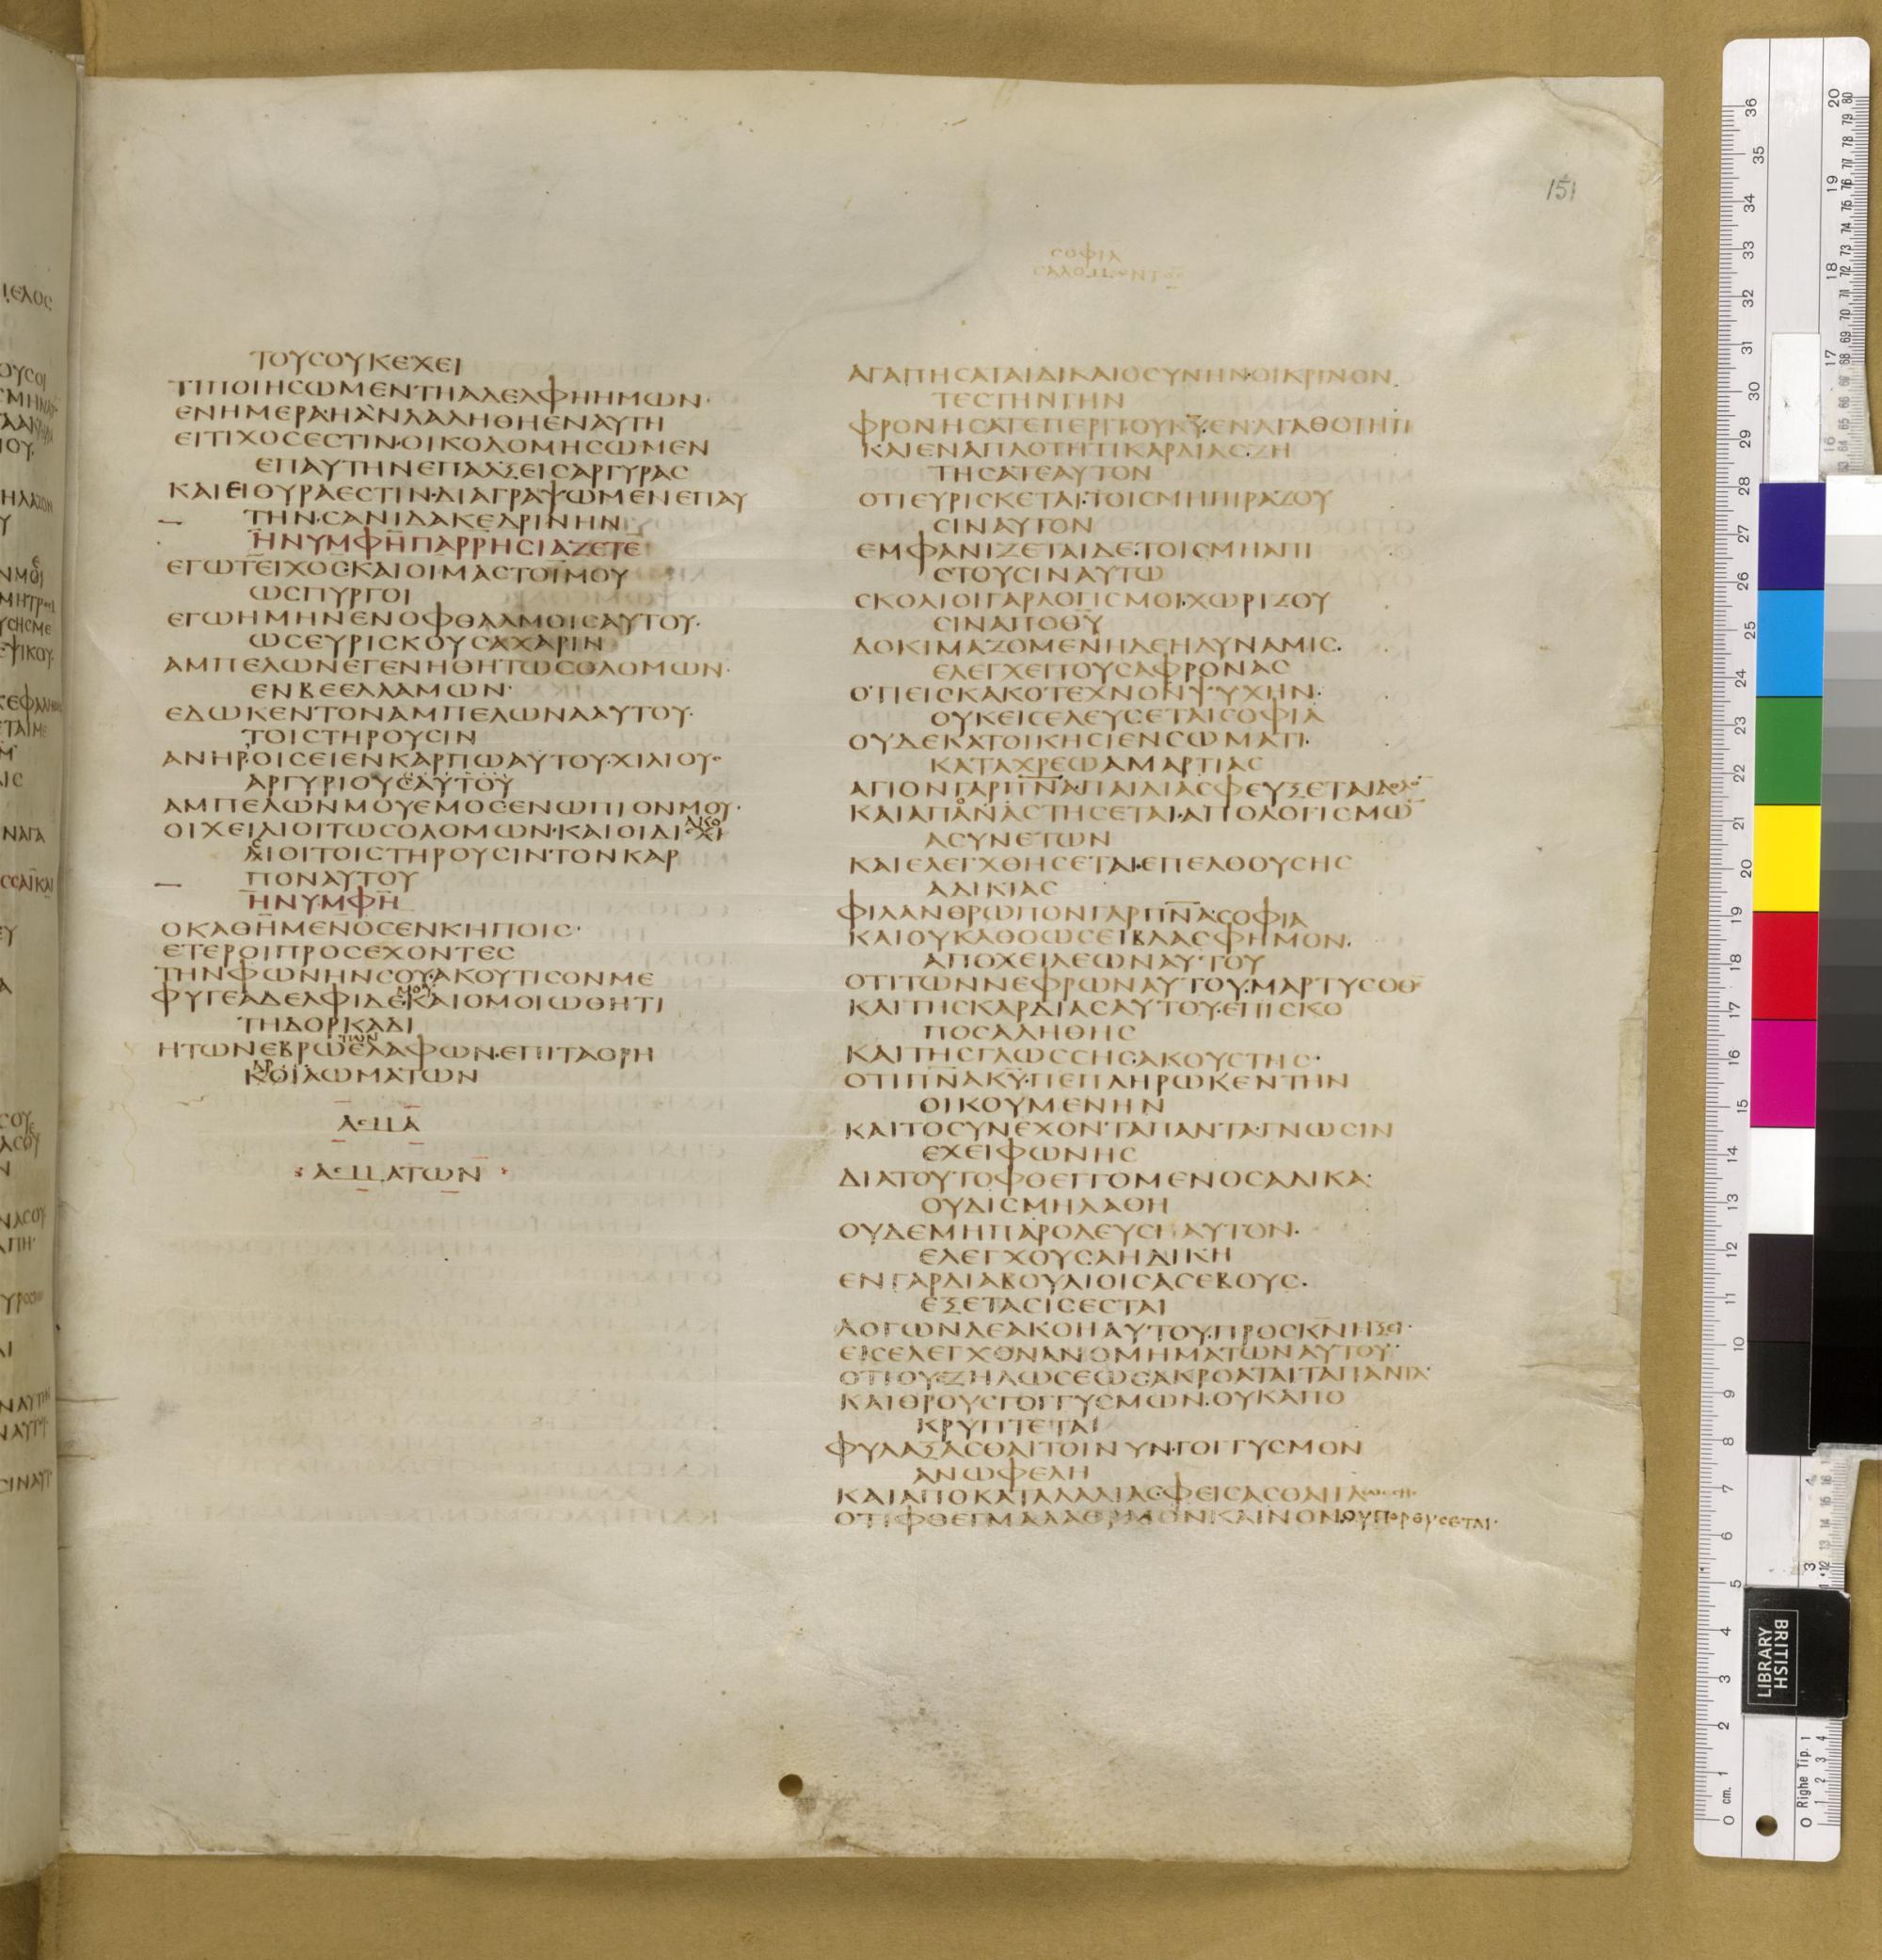 151
ϹΟΦΙΑ
ϹΑΛΟΜΩΝΤΟϹ
ΤΟΥϹΟΥΚΕΧΕΙ
ΤΙΠΟΙΗϹΩΜΕΝΤΗΑΔΕΛΦΗΗΜΩΝ·
ΕΝΗΜΕΡΑΗΑΝΛΑΛΗΘΗΕΝΑΥΤΗ
ΕΙΤΙΧΟϹΕϹΤΙΝ·ΟΙΚΟΔΟΜΗϹΩΜΕΝ
ΕΠΑΥΤΗΝΕΠΑΛΞΕΙϹΑΡΓΥΡΑϹ
ΚΑΙΕΙΘΥΡΑΕϹΤΙΝ·ΔΙΑΓΡΑΨΩΜΕΝΕΠΑΥ
ΤΗΝ·ϹΑΝΙΔΑΚΕΔΡΙΝΗΝ
ΗΝΥΜΦΗΠΑΡΡΗϹΙΑΖΕΤΕ
ΕΓΩΤΕΙΧΟϹΚΑΙΟΙΜΑϹΤΟΙΜΟΥ
ΩϹΠΥΡΓΟΙ
ΕΓΩΗΜΗΝΕΝΟΦΘΑΛΜΟΙϹΑΥΤΟΥ·
ΩϹΕΥΡΙϹΚΟΥϹΑΧΑΡΙΝ
ΑΜΠΕΛΩΝΕΓΕΝΗΘΗΤΩϹΟΛΟΜΩΝ·
ΕΝΒΕΕΛΛΑΜΩΝ·
ΕΔΩΚΕΝΤΟΝΑΜΠΕΛΩΝΑΑΥΤΟΥ·
ΤΟΙϹΤΗΡΟΥϹΙΝ
ΑΝΗΡ·ΟΙϹΕΙΕΝΚΑΡΠΩΑΥΤΟΥ·ΧΙΛΙΟΥϹ
ΑΡΓΥΡΙΟΥϹΑΥΤΟΥ
ΑΜΠΕΛΩΝΜΟΥΕΜΟϹΕΝΩΠΙΟΝΜΟΥ·
ΟΙΧΕΙΛΙΟΙΤΩϹΟΛΟΜΩΝ·ΚΑΙΟΙΔΙΑΚΟϹΙ
ΟΙΤΟΙϹΤΗΡΟΥϹΙΝΤΟΝΚΑΡ
ΠΟΝΑΥΤΟΥ
ΗΝΥΜΦΗ
ΟΚΑΘΗΜΕΝΟϹΕΝΚΗΠΟΙϹ·
ΕΤΕΡΟΙΠΡΟϹΕΧΟΝΤΕϹ
ΤΗΝΦΩΝΗΝϹΟΥ·ΑΚΟΥΤΙϹΟΝΜΕ
ΦΥΓΕΑΔΕΛΦΙΔΕΜΟΥΚΑΙΟΜΟΙΩΘΗΤΙ
ΤΗΔΟΡΚΑΔΙ
ΗΤΩΝΕΒΡΩΤΩΝΕΛΑΦΩΝ·ΕΠΙΤΑΟΡΗ
ΚΟΙΛΩΜΑΤΩΝ
ΑϹΜΑ
ΑϹΜΑΤΩΝ
ΑΓΑΠΗϹΑΤΑΙΔΙΚΑΙΟϹΥΝΗΝ·ΟΙΚΡΙΝΟΝ
ΤΕϹΤΗΝΓΗΝ
ΦΡΟΝΗϹΑΤΕΠΕΡΙΤΟΥΚΥ·ΕΝΑΓΑΘΟΤΗΤΙ
ΚΑΙΕΝΑΠΛΟΤΗΤΙΚΑΡΔΙΑϹ·ΖΗ
ΤΗϹΑΤΕΑΥΤΟΝ
ΟΤΙΕΥΡΙϹΚΕΤΑΙ·ΤΟΙϹΜΗΠΙΡΑΖΟΥ
ϹΙΝΑΥΤΟΝ
ΕΜΦΑΝΙΖΕΤΑΙΔΕ·ΤΟΙϹΜΗΑΠΙ
ϹΤΟΥϹΙΝΑΥΤΩ
ϹΚΟΛΙΟΙΓΑΡΛΟΓΙϹΜΟΙ·ΧΩΡΙΖΟΥ
ϹΙΝΑΠΟΘΥ
ΔΟΚΙΜΑΖΟΜΕΝΗΔΕΗΔΥΝΑΜΙϹ·
ΕΛΕΓΧΕΙΤΟΥϹΑΦΡΟΝΑϹ
ΟΤΙΕΙϹΚΑΚΟΤΕΧΝΟΝΨΥΧΗΝ·
ΟΥΚΕΙϹΕΛΕΥϹΕΤΑΙϹΟΦΙΑ
ΟΥΔΕΚΑΤΟΙΚΗϹΙΕΝϹΩΜΑΤΙ·
ΚΑΤΑΧΡΕΩΑΜΑΡΤΙΑϹ
ΑΓΙΟΝΓΑΡΠΝΑΠΑΙΔΙΑϹΦΕΥΞΕΤΑΙΔΟΛΟ
ΚΑΙΑΠΑΝΑϹΤΗϹΕΤΑΙ·ΑΠΟΛΟΓΙϹΜΩ
ΑϹΥΝΕΤΩΝ
ΚΑΙΕΛΕΓΧΘΗϹΕΤΑΙ·ΕΠΕΛΘΟΥϹΗϹ
ΑΔΙΚΙΑϹ
ΦΙΛΑΝΘΡΩΠΟΝΓΑΡΠΝΑϹΟΦΙΑ
ΚΑΙΟΥΚΑΘΟΩϹΕΙΒΛΑϹΦΗΜΟΝ·
ΑΠΟΧΕΙΛΕΩΝΑΥΤΟΥ
ΟΤΙΤΩΝΝΕΦΡΩΝΑΥΤΟΥ·ΜΑΡΤΥϹΟΘϹ
ΚΑΙΤΗϹΚΑΡΔΙΑϹΑΥΤΟΥ·ΕΠΙϹΚΟ
ΠΟϹΑΛΗΘΗϹ
ΚΑΙΤΗϹΓΛΩϹϹΗϹ·ΑΚΟΥϹΤΗϹ·
ΟΤΙΠΝΑΚΥ·ΠΕΠΛΗΡΩΚΕΝΤΗΝ
ΟΙΚΟΥΜΕΝΗΝ
ΚΑΙΤΟϹΥΝΕΧΟΝΤΑΠΑΝΤΑ·ΓΝΩϹΙΝ
ΕΧΕΙΦΩΝΗϹ
ΔΙΑΤΟΥΤΟΦΘΕΓΓΟΜΕΝΟϹΑΔΙΚΑ·
ΟΥΔΙϹΜΗΛΑΘΗ
ΟΥΔΕΜΗΠΑΡΟΔΕΥϹΗΑΥΤΟΝ·
ΕΛΕΓΧΟΥϹΑΗΔΙΚΗ
ΕΝΓΑΡΔΙΑΒΟΥΛΙΟΙϹΑϹΕΒΟΥϹ·
ΕΞΕΤΑϹΙϹΕϹΤΑΙ
ΛΟΓΩΝΔΕΑΚΟΗΑΥΤΟΥ·ΠΡΟϹΚΝΗΞΕΙ·
ΕΙϹΕΛΕΓΧΟΝΑΝΟΜΗΜΑΤΩΝΑΥΤΟΥ·
ΟΤΙΟΥϹΖΗΛΩϹΕΩϹΑΚΡΟΑΤΑΙΤΑΠΑΝΤΑ·
ΚΑΙΘΡΟΥϹΓΟΓΓΥϹΜΩΝ·ΟΥΚΑΠΟ
ΚΡΥΠΤΕΤΑΙ
ΦΥΛΑΞΑϹΘΑΙΤΟΙΝΥΝ·ΓΟΓΓΥϹΜΟΝ
ΑΝΩΦΕΛΗ
ΚΑΙΑΠΟΚΑΤΑΛΑΛΙΑϹΦΕΙϹΑϹΘΑΙΓΛΩϹϹΗϹ·
ΟΤΙΦΘΕΓΜΑΛΑΘΡΑΙΟΝΚΑΙΝΟΝ·ΟΥΠΟΡΕΥϹΕΤΑΙ·
BRITISH
LIBRARY